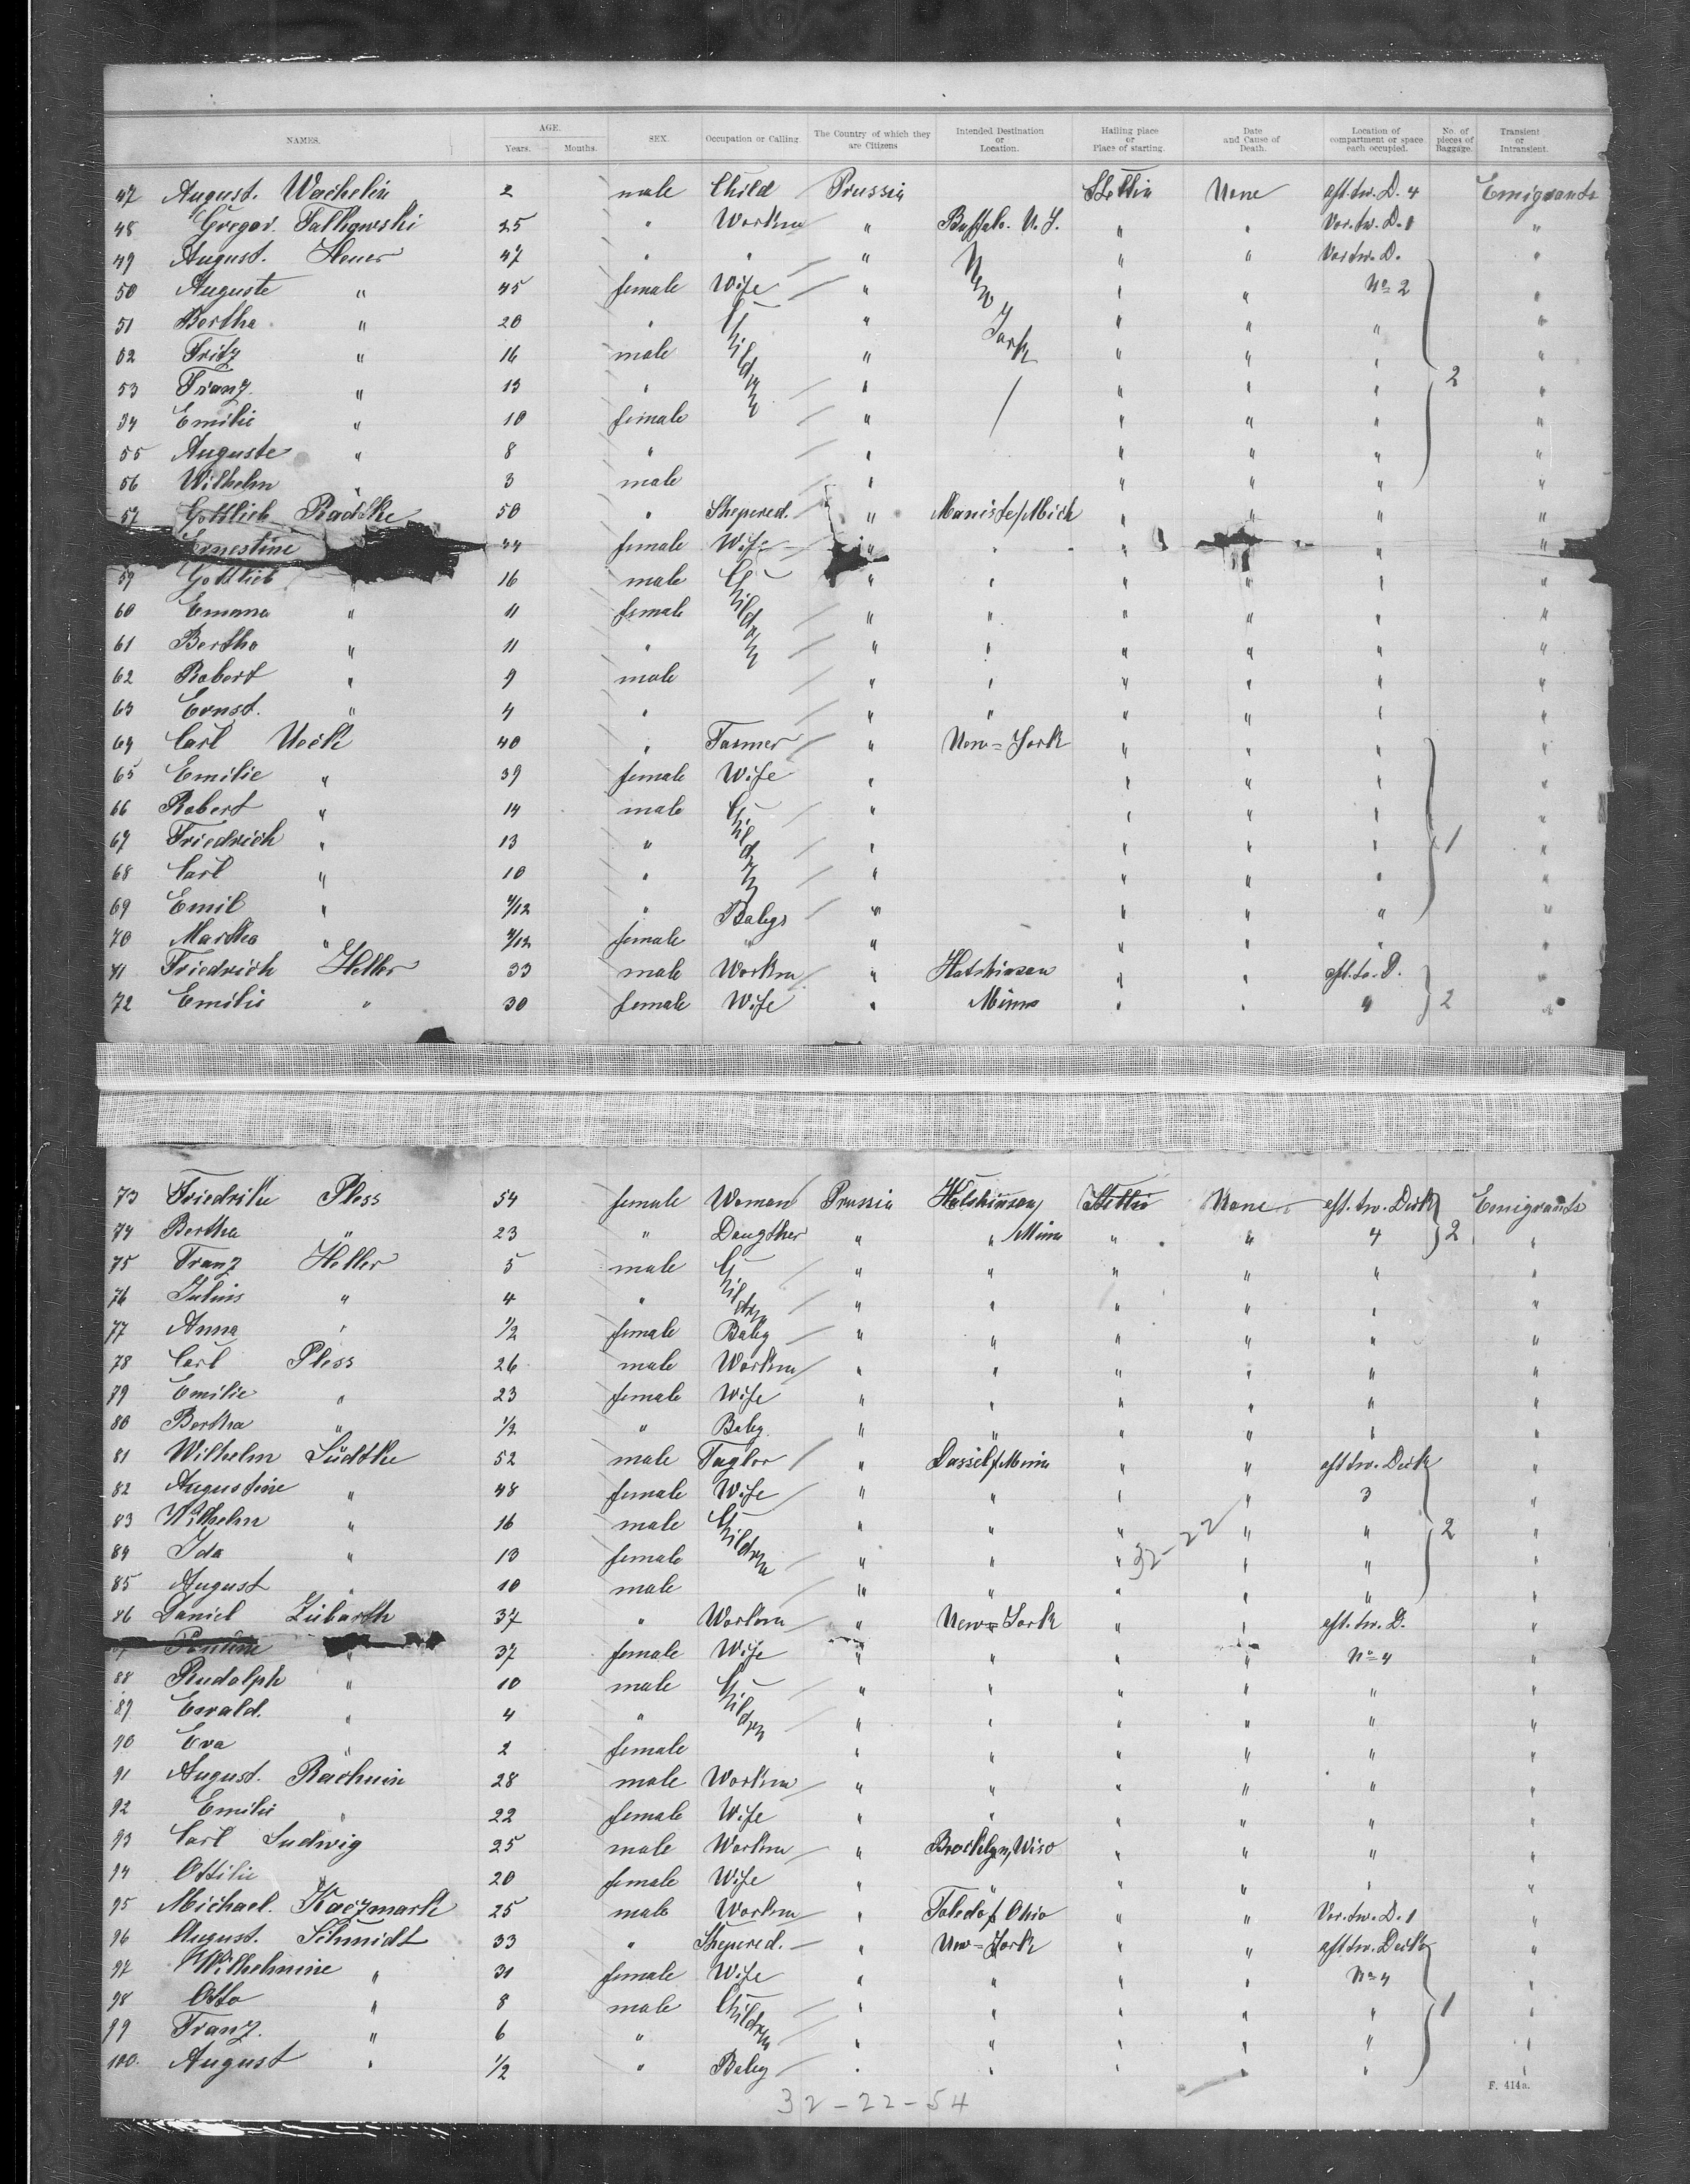 NAMES. AGE. Years. Months. SEX. Occupation or Calling. The Country of which they are Citizens Intended Destination or Location. Hailing place or Place of starting. Date and Cause of Death. Location of compartment or space each occupied. No. of pieces of Baggage. Transient or Intransient.
47 August. Wachelin 2 male Child Prussia Stettin None aft. tw. D. 4 Emigrants
48 Gregor. Falkowski 25 " Workm " Buffalo. N. Y. " " Vor. tw. D. 1 "
49 August. Heuer 47 " " " New York " " Vor tw. D. "
50 Auguste " 45 female Wife " " " No 2 "
51 Bertha " 20 " Children " " " " "
52 Fritz " 16 male " " " " "
53 Franz " 13 " " " " " 2 "
54 Emilie " 10 female " " " " "
55 Auguste " 8 " " " " " "
56 Wilhelm " 3 male " " " " "
57 Gottlieb Radtke 50 " Shepered. " Maniste/Mich " " " "
Ernestine 44 female Wife " " " " "
59 Gottlieb 16 male Children " " " " " "
60 Emma " 11 female " " " " " "
61 Bertha " 11 " " " " " " "
62 Robert " 9 male " " " " " "
63 Ernst. " 4 " " " " " " "
64 Carl Ueck 40 " Farmer " New=York " " " "
65 Emilie " 39 female Wife " " " " "
66 Robert " 14 male Children " " " " "
67 Friedrich " 13 " " " " " 1 "
68 Carl " 10 " " " " " "
69 Emil " 4/12 " Babys " " " " "
70 Martha " 4/12 female " " " " " "
71 Friedrich Heller 33 male Workm " Hutshinson " " aft. tw. D. "
72 Emilie " 30 female Wife " Minna " " " 2 "
73 Friedrike Pless 54 female Woman Prussia Hutshinson Stettin None aft. tw. Deck Emigrants
74 Bertha " 23 " Daugther " " Minn " " 4 2 "
75 Franz Heller 5 male Children " " " " " "
76 Julius " 4 " " " " " " "
77 Anna " 1/2 female Baby " " " " " "
78 Carl Pless 26 male Workm " " " " " "
79 Emilie " 23 female Wife " " " " " "
80 Bertha " 1/2 " Baby " " " " " "
81 Wilhelm Lüdtke 52 male Taylor " Dassel/Minn " " aft tw. Deck "
82 Augustine " 48 female Wife " " " " 3 "
83 Wilhelm " 16 male Children " " " " " 2 "
84 Ida " 13 female " " " 32-22 " " "
85 August " 10 male " " " " " "
86 Daniel Zübarth 37 " Workm " New=York " " aft. tw. D. "
Pauline " 37 female Wife " " " " No 4 "
88 Rudolph " 10 male Children " " " " " "
89 Ewald. " 4 " " " " " " "
90 Eva " 2 female " " " " " "
91 August. Rachuin 28 male Workm " " " " " "
92 Emilie " 22 female Wife " " " " " "
93 Carl Ludwig 25 male Workm " Brocklyn, Wiso " " " "
94 Ottilie " 20 female Wife " " " " " "
95 Michael. Kaczmark 25 male Workm " Toledo/ Ohio " " Vor. tw. D. 1 "
96 August. Schmidt 33 " Shepered. " New=York " " aft tw. Deck "
97 Wilhelmine " 31 female Wife " " " " No 4 "
98 Otto " 8 male Children " " " " " 1 "
99 Franz. " 6 " " " " " " "
100. August " 1/2 " Baby " " " " " "
F. 414a.
32-22-54